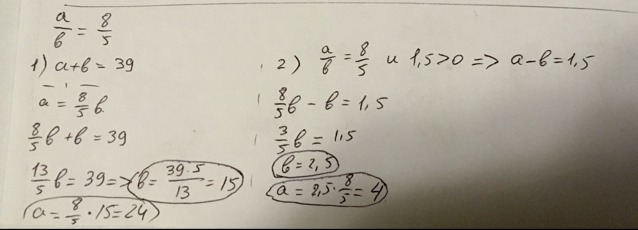 a/в = 8/5
1) a+в = 39
a = 8/5 в
8/5 в + в = 39
13/5 в = 39 => в = 39·5/13 = 15
a = 8/5 · 15 = 24
2) a/в = 8/5 и 1,5>0 => a-в = 1,5
8/5 в - в = 1,5
3/5 в = 1,5
в = 2,5
a = 2,5 · 8/5 = 4